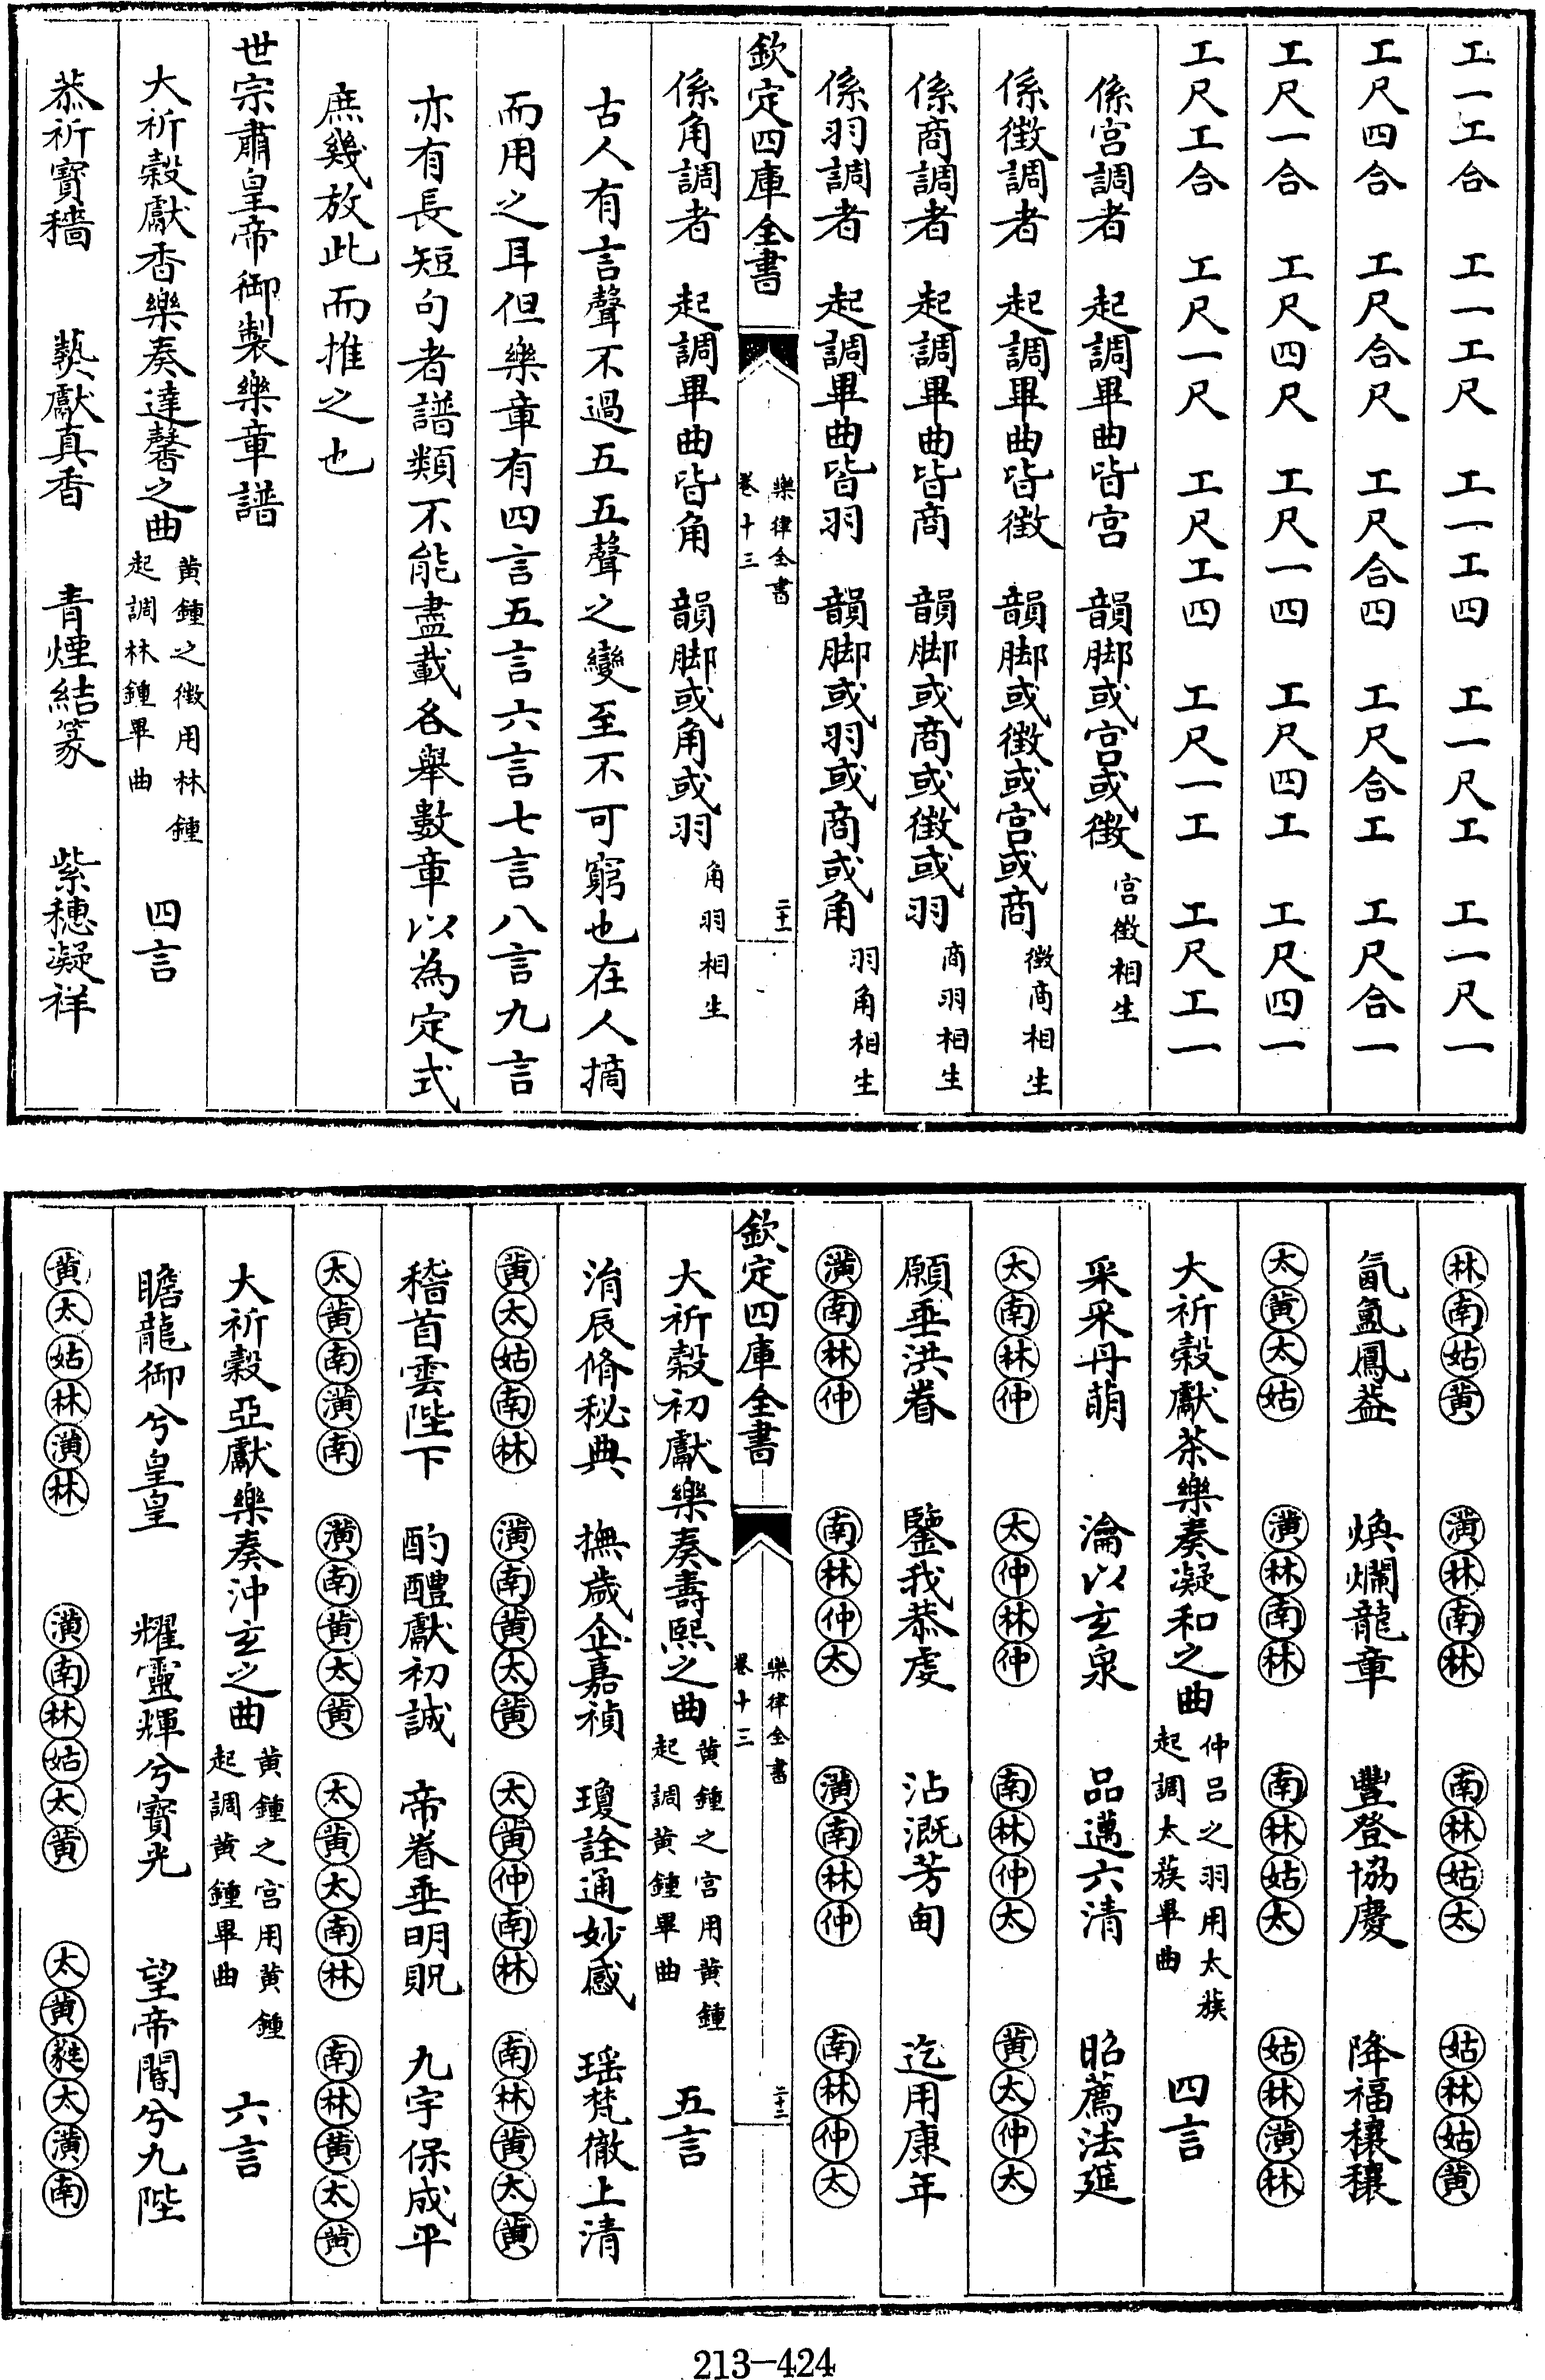 工一工合　工一工尺　工一工四　工一尺工　工一尺一
工尺四合　工尺合尺　工尺合四　工尺合工　工尺合一
工尺一合　工尺四尺　工尺一四　工尺四工　工尺四一
工尺工合　工尺一尺　工尺工四　工尺一工　工尺工一
係宫調者　起調畢曲皆宫　韻脚或宫或徵宫徵相生
係徵調者　起調畢曲皆徵　韻脚或徵或宫或商徵商相生
係商調者　起調畢曲皆商　韻脚或商或徵或羽商羽相生
係羽調者　起調畢曲皆羽　韻脚或羽或商或角羽角相生
欽定四庫全書　樂律全書卷十三　二十一
係角調者　起調畢曲皆角　韻脚或角或羽角羽相生
古人有言聲不過五五聲之變至不可窮也在人摘
而用之耳但樂章有四言五言六言七言八言九言
亦有長短句者譜類不能盡載各舉數章以為定式
庶幾放此而推之也
世宗肅皇帝御製樂章譜
大祈穀獻香樂奏達馨之曲黄鍾之徵用林鍾起調林鍾畢曲　四言
恭祈寶穡　爇獻真香　青煙結篆　紫穗凝祥
林南姑黄　潢林南林　南林姑太　姑林姑黄
氤氲鳳葢　煥爛龍章　豐登協慶　降福穰穰
太黄太姑　潢林南林　南林姑太　姑林潢林
大祈穀獻茶樂奏凝和之曲仲吕之羽用太蔟起調太蔟畢曲　四言
采采丹萌　瀹以玄泉　品邁六清　昭薦法筵
太南林仲　太仲林仲　南林仲太　黄太仲太
願垂洪眷　鑒我恭虔　沾溉芳甸　迄用康年
潢南林仲　南林仲太　潢南林仲　南林仲太
欽定四庫全書　樂律全書卷十三　二十二
大祈穀初獻樂奏壽熙之曲黄鍾之宫用黄鍾起調黄鍾畢曲　五言
涓辰脩秘典　撫歲企嘉禎　瓊詮通妙感　瑶梵徹上清
黄太姑南林　潢南黄太黄　太黄仲南林　南林黄太黄
稽首雲陛下　酌醴獻初誠　帝眷垂明貺　九宇保成平
太黄南潢南　潢南黄太黄　太黄太南林　南林黄太黄
大祈穀亞獻樂奏沖玄之曲黄鍾之宫用黄鍾起調黄鍾畢曲　六言
瞻龍御兮皇皇　耀靈輝兮寶光　望帝閽兮九陛
黄太姑林潢林　潢南林姑太黄　太黄蕤太潢南
213—424